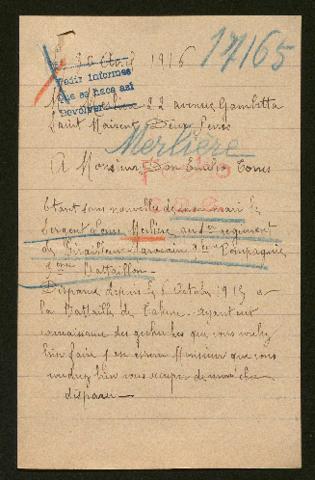 30 Avril 1916
17165
Pedir informes
Que se haga así
Devolver
22 avenue Gambetta
Saint Maixent Deux Sèvres
Merliere
A Monsieur Don Emilio Torres
Etant sans nouvelles de mon mari le
Sergent Louis Merliere au régiment
de Tirailleurs Marocains Compagnie
Bataillon
Disparu depuis le 6 Octobre 1915 a
la Bataille de Tahure. ayant eut
connaissance des que vous voulez
bien faire j'ose espérer Monsieur que vous
voudrez bien vous occuper de mon cher
disparu